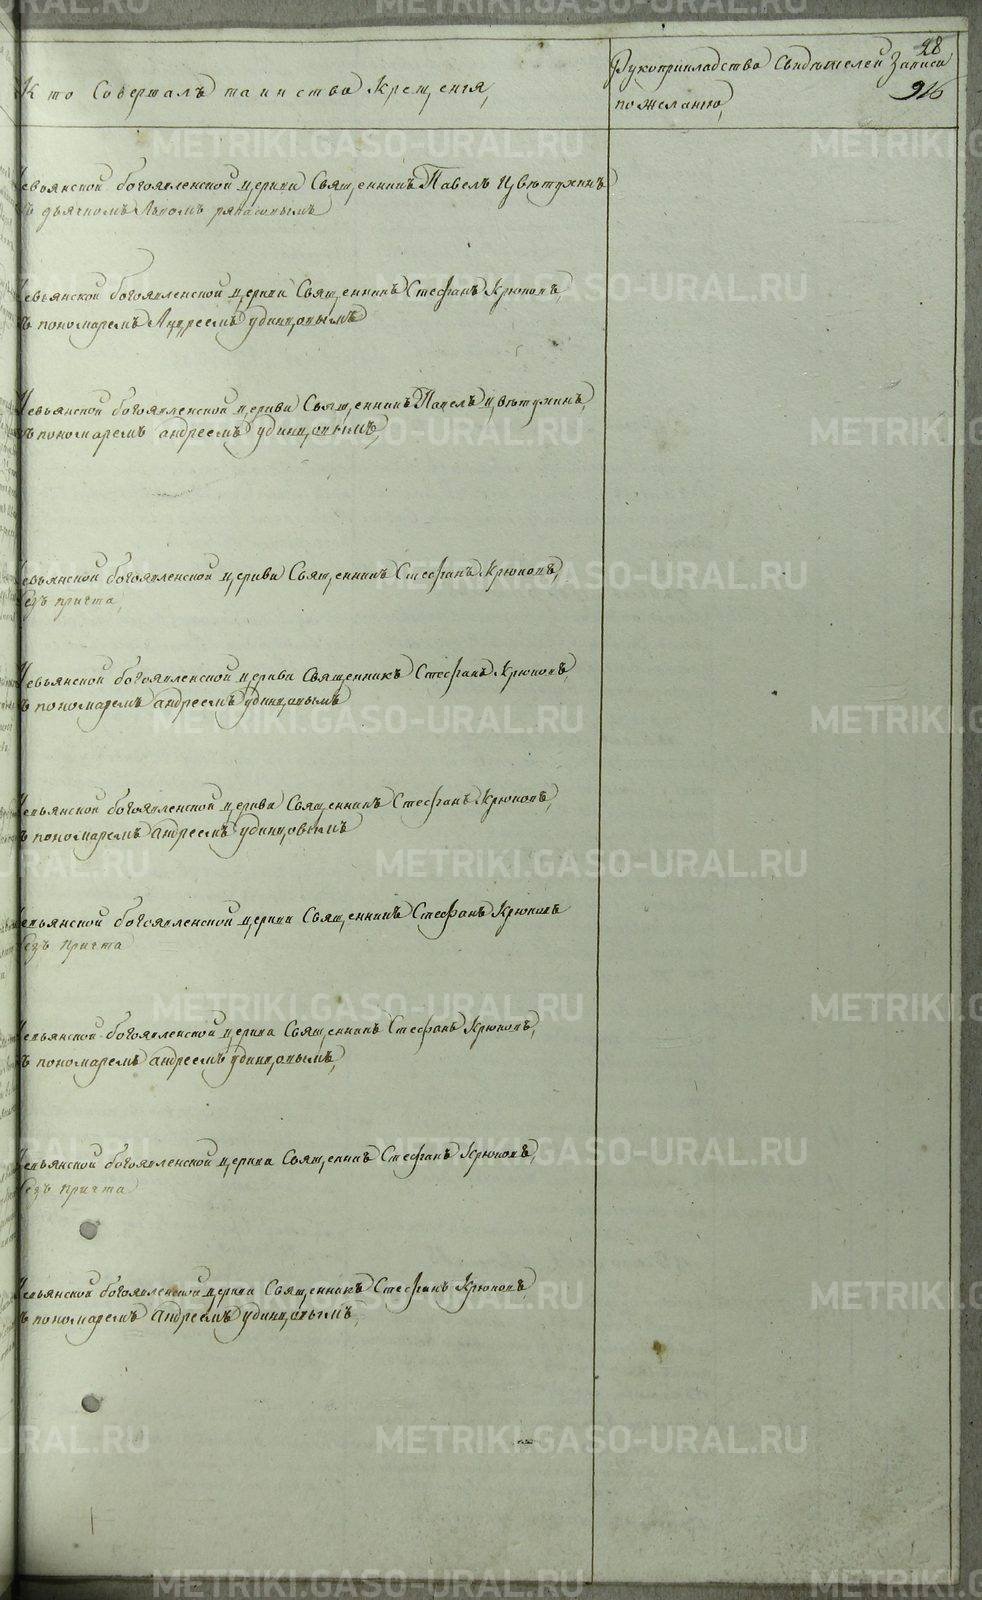 28
916
Кто Совершалъ таинство Крещенія,
Рукоприкладство Свидѣтелей Записи
по желанію,
Невьянской богоявленской церкви Священникъ Павелъ Цвѣтухинъ
съ дьячкомъ
Невьянской богоявленской церкви Священникъ Стефанъ Крюковъ,
съ пономаремъ Андреемъ удинцовымъ
Невьянской богоявленской церкви Священникъ Павелъ Цвѣтухинъ,
съ пономаремъ андреемъ удинцовымъ,
Невьянской богоявленской церкви Священникъ Стефанъ Крюковъ,
безъ причта,
Невьянской богоявленской церкви Священникъ Стефанъ Крюковъ,
съ пономаремъ андреемъ удинцовымъ
Невьянской богоявленской церкви Священникъ Стефанъ Крюковъ,
съ пономаремъ андреемъ удинцовымъ
Невьянской богоявленской церкви Священникъ Стефанъ Крюковъ
безъ причта
Невьянской богоявленской церкви Священникъ Стефанъ Крюковъ,
съ пономаремъ андреемъ удинцовымъ,
Невьянской богоявленской церкви Священникъ Стефанъ Крюковъ,
безъ причта
Невьянской богоявленской церкви Священникъ Стефанъ Крюковъ
съ пономаремъ Андреемъ удинцовымъ,
METRIKI.GASO-URAL.RU